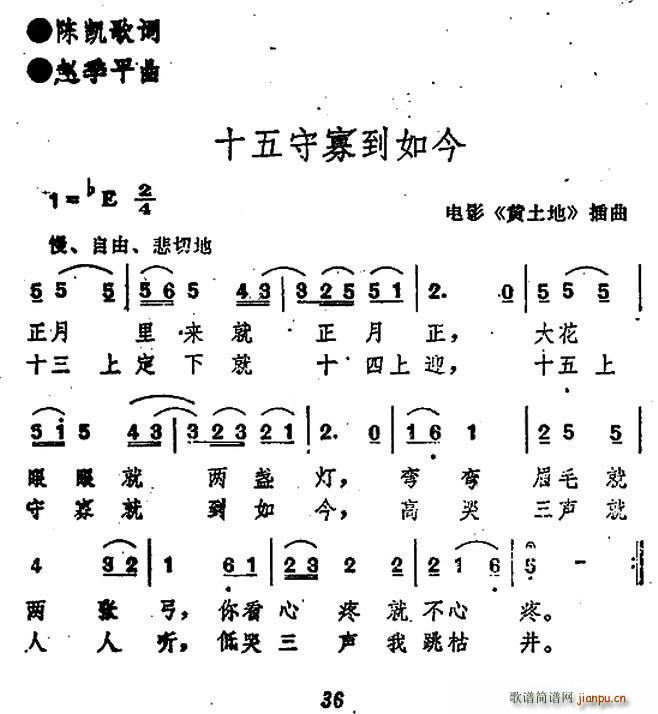 ●陈凯歌词
●赵季平曲
十五守寡到如今
1=♭E 2/4
电影《黄土地》插曲
慢、自由、悲切地
5 5 5 | 5 6 5 4 3 | 3 2 5 5 1 | 2. 0 | 5 5 5 |
正月 里来就 正月正, 大花
十三上定下就 十四上迎, 十五上
5 1 5 4 3 | 3 2 3 2 1 | 2. 0 | 1 6 1 | 2 5 5 |
眼眼就 两盏灯, 弯弯眉毛就
守寡就 到如今, 高哭三声就
4 3 2 | 1 6 1 | 2 3 2 2 | 2 1 6 | 5 - :||
两张弓, 你看心疼就不心疼。
人人听, 低哭三声我跳枯井。
36
歌谱简谱网
jianpu.cn